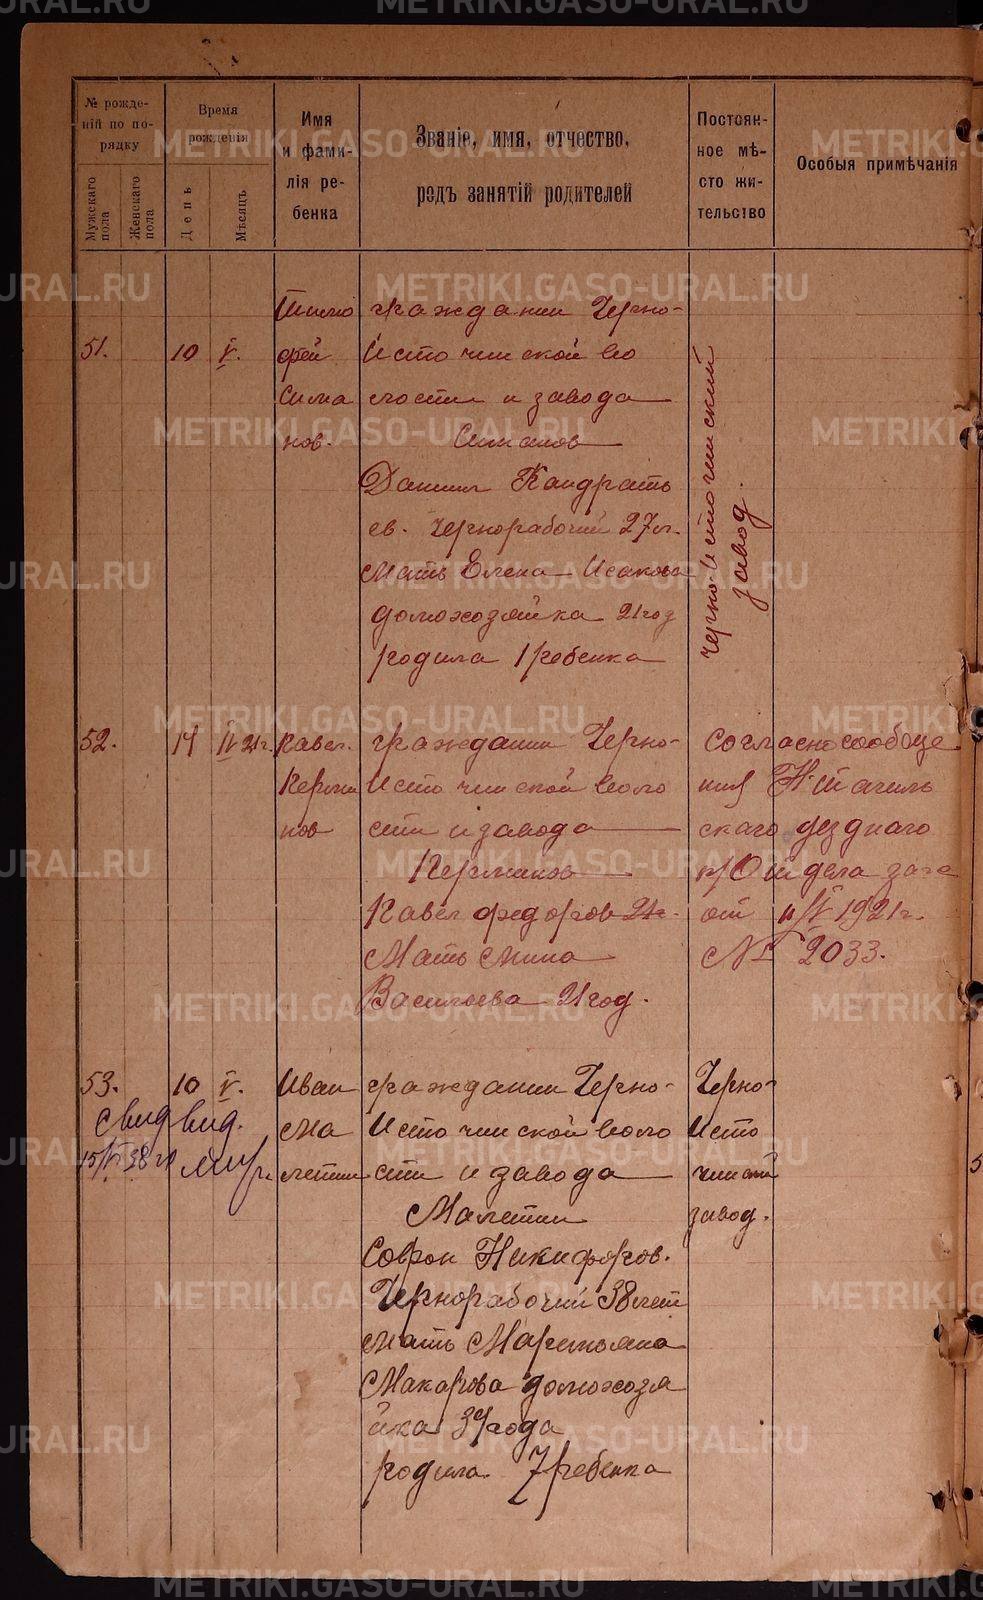 № рожде-
ній по по-
рядку
Мужскаго
пола
Женскаго
пола
Время
рожденія
День
Мѣсяцъ
Имя
и фами-
лія ре-
бенка
Званіе, имя, отчество,
родъ занятій родителей
Постоян-
ное мѣ-
сто жи-
тельство
Особыя примѣчанія
51.
10 V.
Тимо
фей
Сима
нов.
гражданин Черно-
Источинской во
лости и завода
Симанов
Даниил Кандрать
ев. Чернорабочий 27 л.
Мать Елена Исакова
домохозяйка 21 год
родила 1 ребенка
Черно-Источинский
завод.
52.
14 IV 21 г.
Павел.
Перми
нов
гражданин Черно-
Источинской воло
сти и завода
Перминов
Павел Федоров 21 г.
Мать Анна
Васильева 21 год.
согласно сообще
ния Н-Тагиль
скаго уезднаго
п/Отдела загс
от 11/V 1921 г.
№ 2033.
53.
10 V.
Свид вид.
15/VI 38 г.
Иван
Ма
летин
гражданин Черно-
Источинской воло
сти и завода
Малетин
Софрон Никифоров.
Чернорабочий 38 лет
мать Маремьяна
Макарова домохозя
йка 39 года
родила. 7 ребенка
Черно-
Исто
чинский
завод.
METRIKI.GASO-URAL.RU